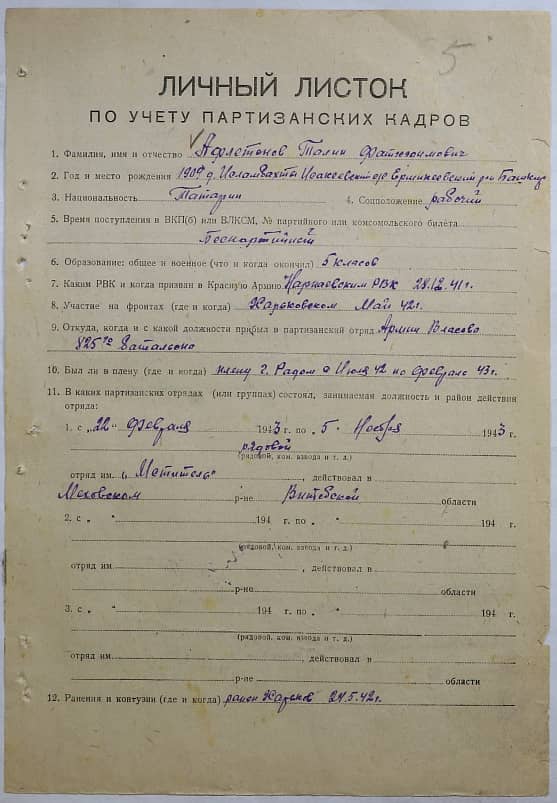 5
ЛИЧНЫЙ ЛИСТОК
ПО УЧЕТУ ПАРТИЗАНСКИХ КАДРОВ
1. Фамилия, имя и отчество Афлетонов Талип
2. Год и место рождения 1909 д. Исламбахты Ермикеевский р-н Башкир
3. Национальность Татарин 4. Соцположение рабочий
5. Время поступления в ВКП(б) или ВЛКСМ, № партийного или комсомольского билета
Беспартийный
6. Образование: общее и военное (что и когда окончил) 5 класов
7. Каким РВК и когда призван в Красную Армию РВК 28.12.41г.
8. Участие на фронтах (где и когда) Харьковском Май 42г.
9. Откуда, когда и с какой должности прибыл в партизанский отряд Армии Власова
825го батальона
10. Был ли в плену (где и когда) плену г. Радом с Июля 42 по февраль 43г.
11. В каких партизанских отрядах (или группах) состоял, занимаемая должность и район действия
отряда:
1. с „22“ Февраля 1943 г. по „5“ Ноября 1943 г.
рядовой
(рядовой, ком. взвода и т. д.)
отряд им. „Мститель“ , действовал в
Меховском р-не Витебской области
2. с „ “ 194 г. по „ “ 194 г.
(рядовой, ком. взвода и т. д.)
отряд им. , действовал в
р-не области
3. с „ “ 194 г. по „ “ 194 г.
(рядовой, ком. взвода и т. д.)
отряд им. , действовал в
р-не области
12. Ранения и контузии (где и когда) район 24.5.42г.